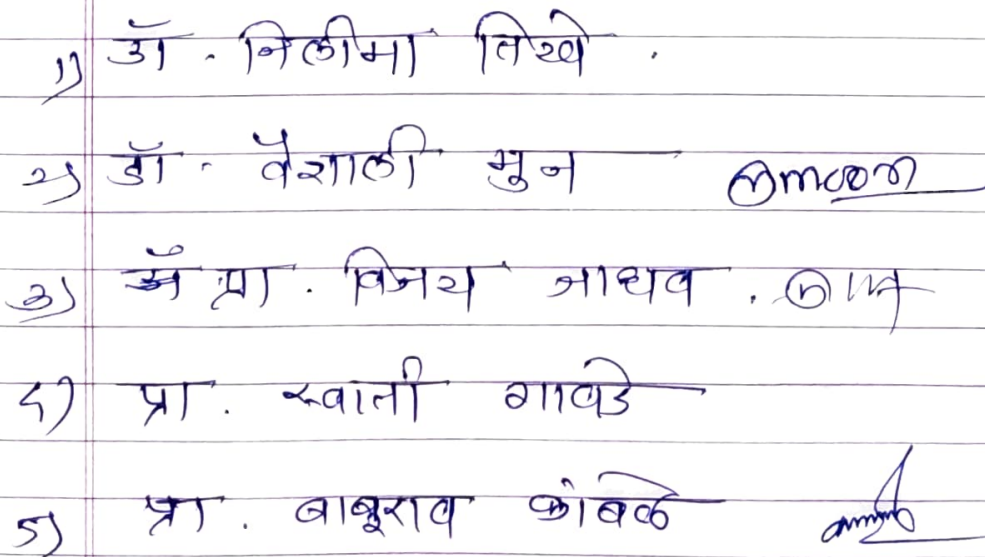 १) डॉ. निलीमा तिखे.
२) डॉ. वैशाली मुन
३) प्रा. विजय जाधव.
४) प्रा. स्वाती गावडे
५) प्रा. बाबुराव कांबळे